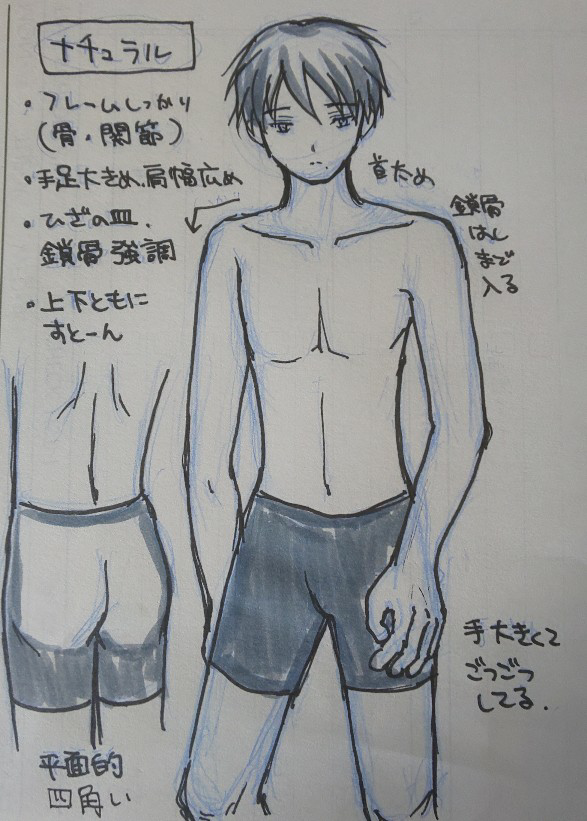 ナチュラル
・フレームしっかり
(骨・関節)
・手足大きめ、肩幅広め
・ひざの皿、
鎖骨強調
・上下ともに
すとーん
首太め
鎖骨
はし
まで
入る
手大きくて
ごつごつ
してる.
平面的
四角い